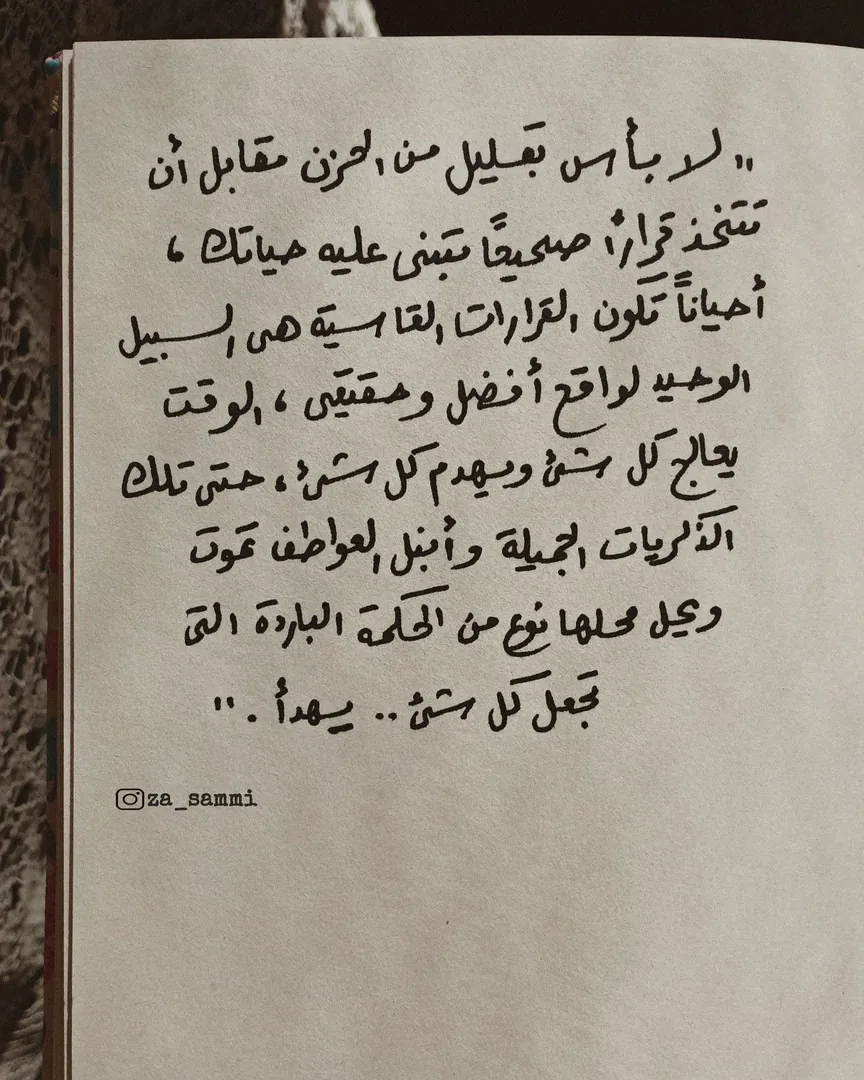 "لا بأس بقليل من الحزن مقابل أن
تتخذ قرارًا صحيحًا تبنى عليه حياتك ،
أحيانًا تكون القرارات القاسية هى السبيل
الوحيد لواقع أفضل وحقيقى ، الوقت
يعالج كل شئ ويهدم كل شئ ، حتى تلك
الذكريات الجميلة وأنبل العواطف تموت
ويحل محلها نوع من الحكمة الباردة التى
تجعل كل شئ .. يهدأ . "
za_sammi